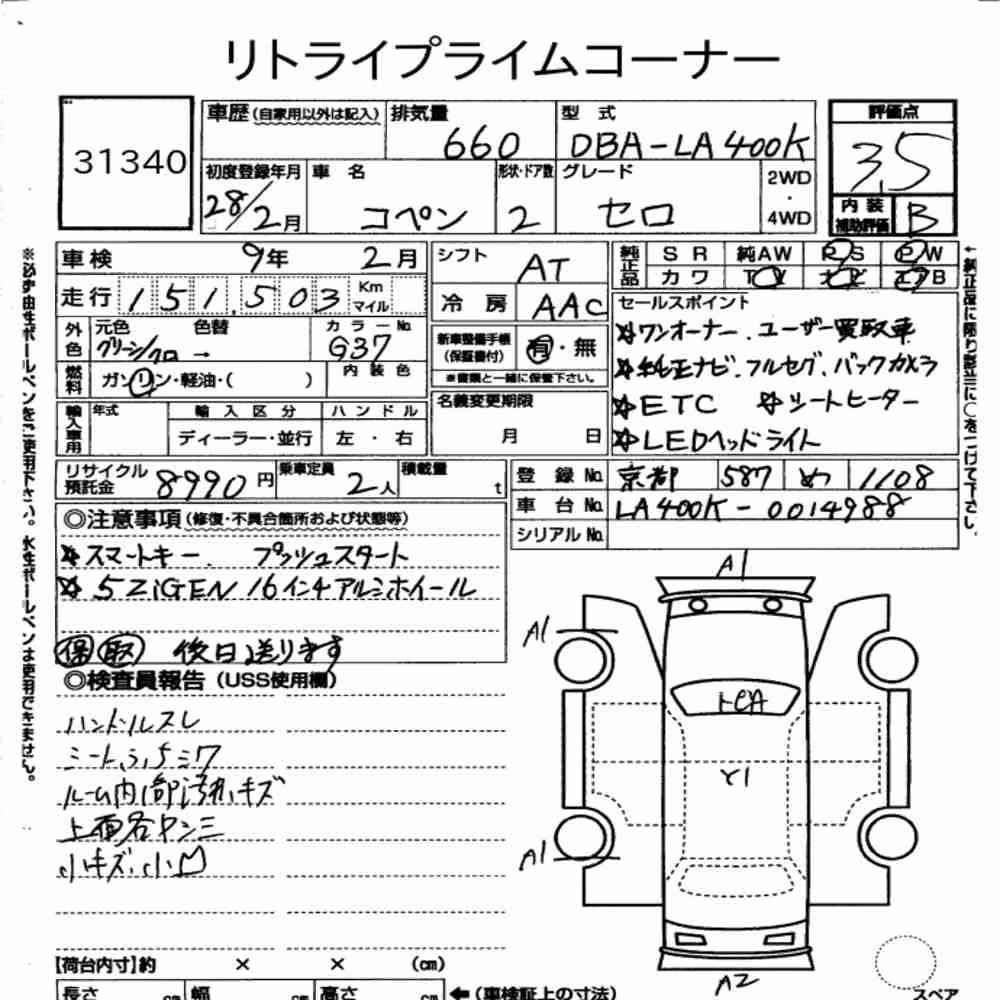 リトライプライムコーナー
31340
車歴(自家用以外は記入) 排気量 660 型式 DBA-LA400K 評価点 3.5
初度登録年月 28/2月 車名 コペン 形状・ドア数 2 グレード セロ 2WD・4WD 内装補助評価 B
車検 9年 2月 シフト AT 純正品 SR 純AW PS PW
走行 151,503 Km マイル 冷房 AAC カワ TV ナビ エアB
外色 元色 グリーン/クロ 色替 → カラーNo G37 新車整備手帳(保証書付) 有・無
※書類と一緒に保管下さい。
燃料 ガソリン・軽油・( ) 内装色
名義変更期限 月 日
輸入車用 年式 輸入区分 ディーラー・並行 ハンドル 左・右
セールスポイント
☆ワンオーナー、ユーザー買取車
☆純正ナビ、フルセグ、バックカメラ
☆ETC ☆シートヒーター
☆LEDヘッドライト
リサイクル預託金 8990円 乗車定員 2人 積載量 t
登録No. 京都 587 め 1108
車台No. LA400K-0014988
シリアルNo.
◎注意事項(修復・不具合箇所および状態等)
☆スマートキー、プッシュスタート
☆5ZiGEN 16インチアルミホイール
保 取 後日送ります
◎検査員報告(USS使用欄)
ハンドルスレ
シートふちシワ
ルーム内1部汚れ、キズ
上面各
小キズ、小凹
A1
A1
Y1
A1
A2
【荷台内寸】約 × × (cm)
長さ cm 幅 cm 高さ cm ←(車検証上の寸法)
スペア
※必ず油性ボールペンをご使用下さい。水性ボールペンは使用できません。
←純正品に限り影当に○をつけて下さい。